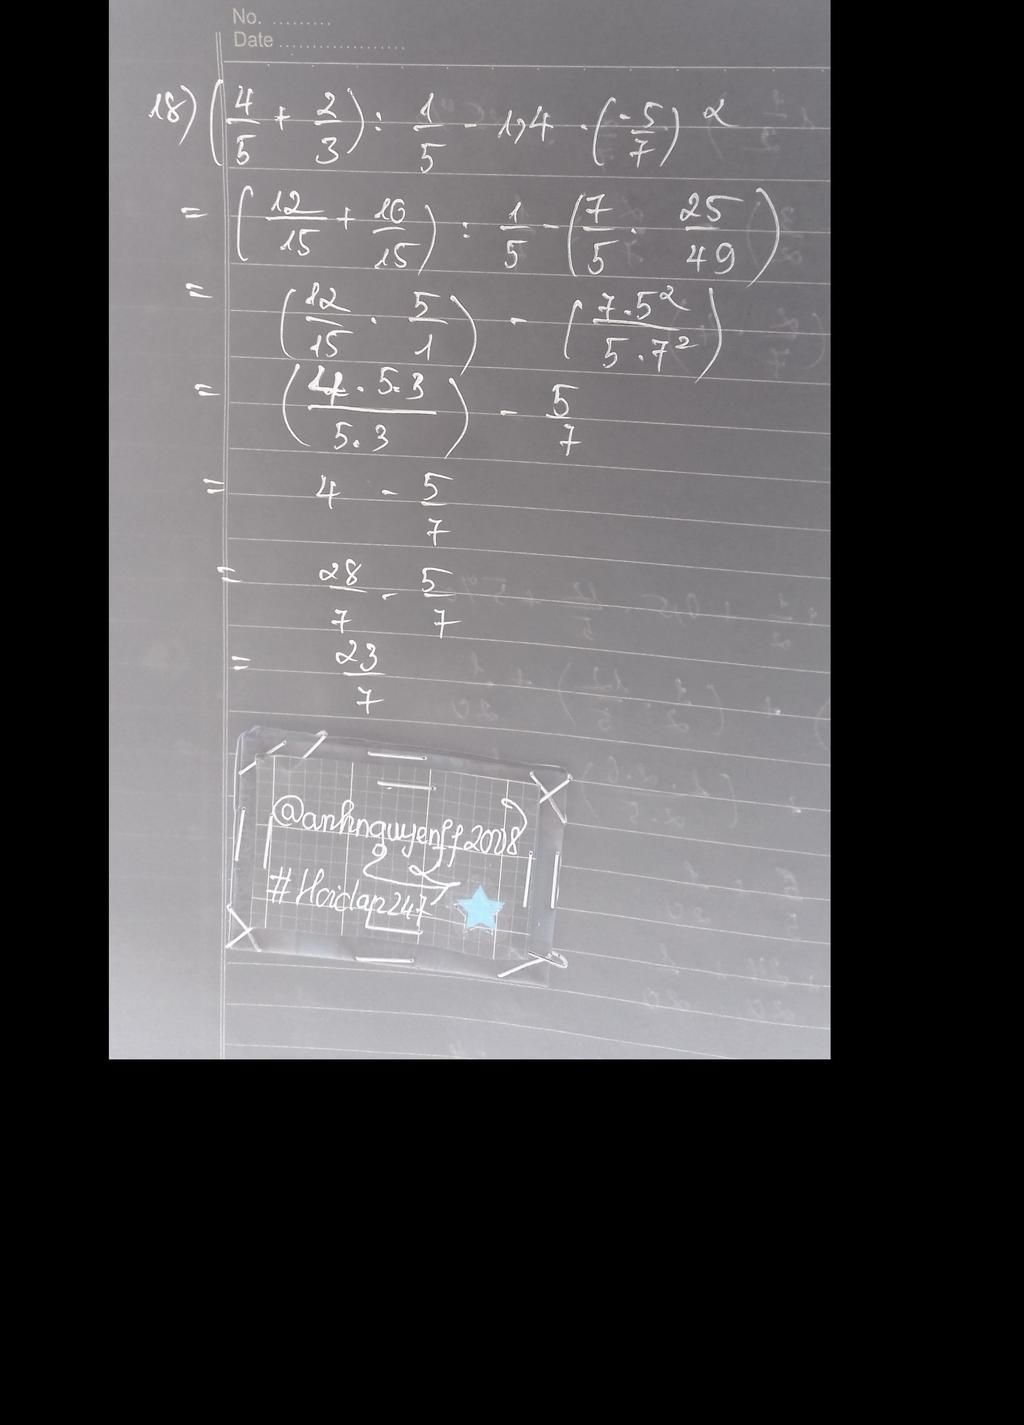 No. .........
Date ...................
18) (4/5 + 2/3) : 1/5 - 1,4 . (-5/7)²
= (12/15 + 10/15) : 1/5 - (7/5 . 25/49)
= (12/15 . 5/1) - (7.5²/5.7²)
= (4.5.3/5.3) - 5/7
= 4 - 5/7
= 28/7 - 5/7
= 23/7
@anhnguyenff2008
#Hoidap247